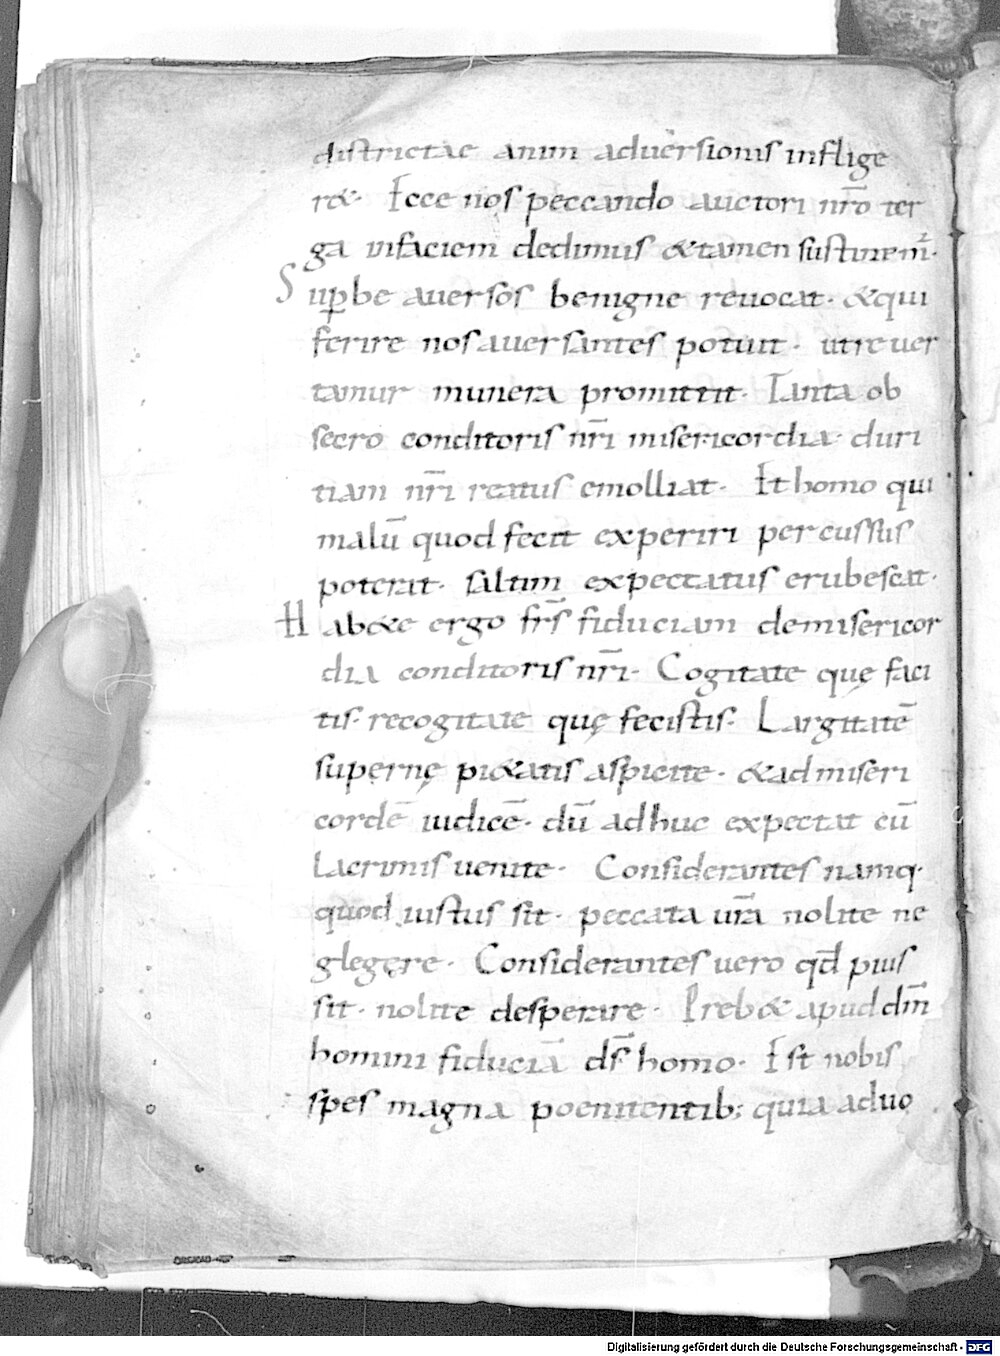 districtae anim aduersionis inflige
r&. Ecce nos peccando auctori nr̄o ter
ga infaciem dedimus &tamen sustinem̄.
Sup̱be auersos benigne reuocat. &qui
ferire nos auersantes potuit. utreuer
tamur munera promittit. Tanta ob
secro conditoris nr̄i misericordia. duri
tiam nr̄i reatus emolliat. Et homo qui
malū quod fecit experiri percussus
poterat. saltim expectatus erubescat.
Hab&e ergo fr̄s fiduciam demisericor
dia conditoris nr̄i. Cogitate quę faci
tis. recogitate quę fecistis. Largitatē
supernę pi&atis aspicite. &admiseri
cordē iudicē. dū adhuc expectat cū
lacrimis uenite. Considerantes namq.
quod iustus sit. peccata ur̄a nolite ne
glegęre. Considerantes uero qd̄ pius
sit. nolite desperare. Preb& apud dm̄
homini fiduciā ds̄ homo. Est nobis
spes magna poenitentib; quia aduo
Digitalisierung gefördert durch die Deutsche Forschungsgemeinschaft - DFG